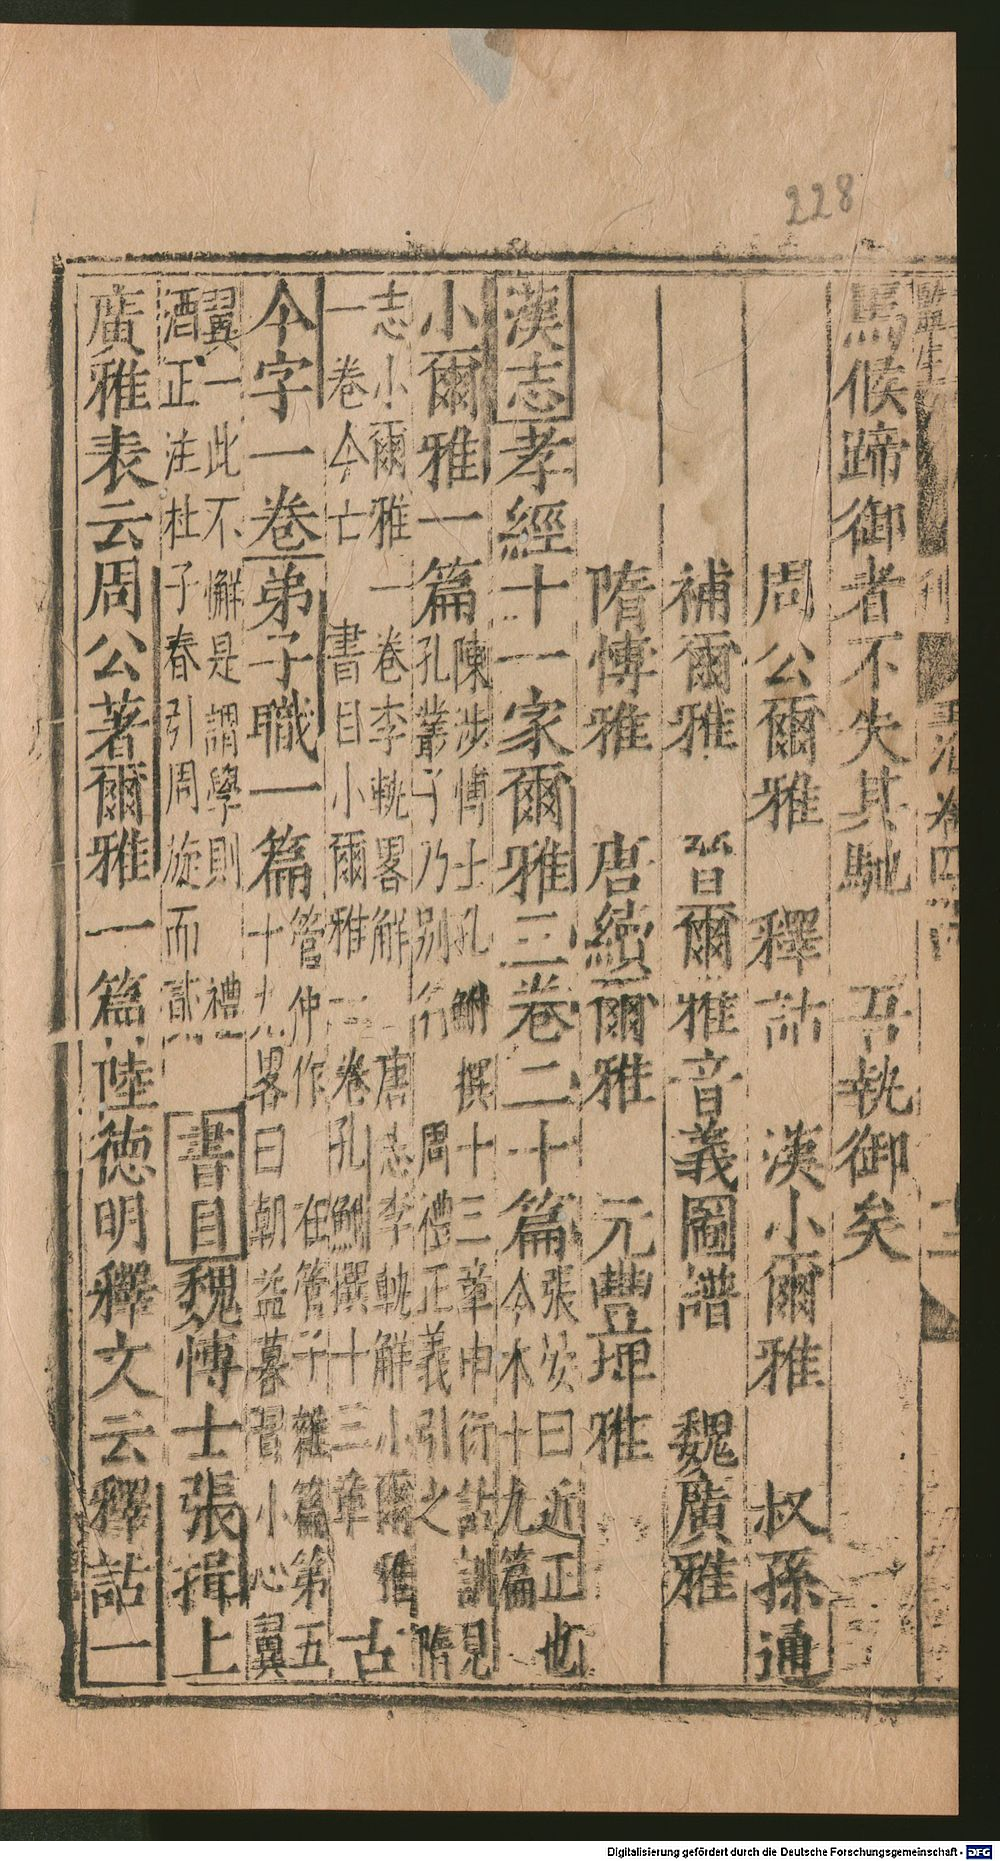 228
馬候蹄御者不失其馳 吾執御矣
周公爾雅 釋詁 漢小爾雅 叔孫通
補爾雅 晉爾雅音義圖譜 魏廣雅
隋博雅 唐續爾雅 元豐埤雅
漢志孝經十一家爾雅三卷二十篇張晏曰近正也
今本十九篇
小爾雅一篇陳涉博士孔鮒撰十三章申衍詁訓見
孔叢子乃別行 周禮正義引之 隋
志小爾雅一卷李軌畧解 唐志李軌解小爾雅
一卷今亡 書目小爾雅一卷孔鮒撰十三章 古
今字一卷弟子職一篇管仲作 在管子雜篇第五
十九畧曰朝益暮習小心翼
翼一此不懈是謂學則 禮
酒正注杜子春引周旋而貳 書目魏博士張揖上
廣雅表云周公著爾雅一篇陸德明釋文云釋詁一
Digitalisierung gefördert durch die Deutsche Forschungsgemeinschaft - DFG